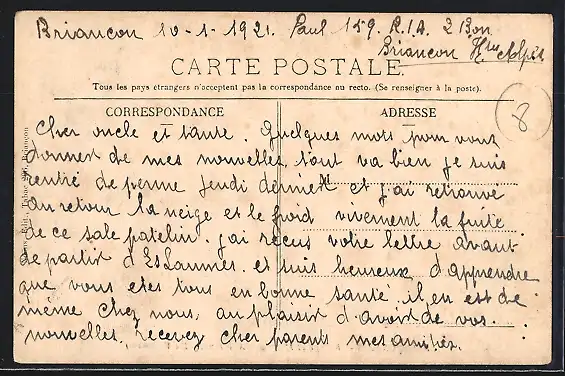 Briancon 10-1-1921. Paul 159. R.I.A. 2 Bon
Briancon Htes Alpes
CARTE POSTALE
Tous les pays étrangers n'acceptent pas la correspondance au recto. (Se renseigner à la poste).
8
CORRESPONDANCE
ADRESSE
Cher oncle et tante. Quelques mots pour vous
donner de mes nouvelles. tout va bien je suis
rentré de perme Jeudi dernier et j'ai retrouvé
M
au retour la neige et le froid vivement la fuite
de ce sale patelin. j'ai recus votre lettre avant
de partir et suis heureux d'apprendre
que vous etes tous en bonne santé. il en est de
même chez nous, au plaisir d'avoir de vos.
nouvelles, recevez cher parents mes amitiés.